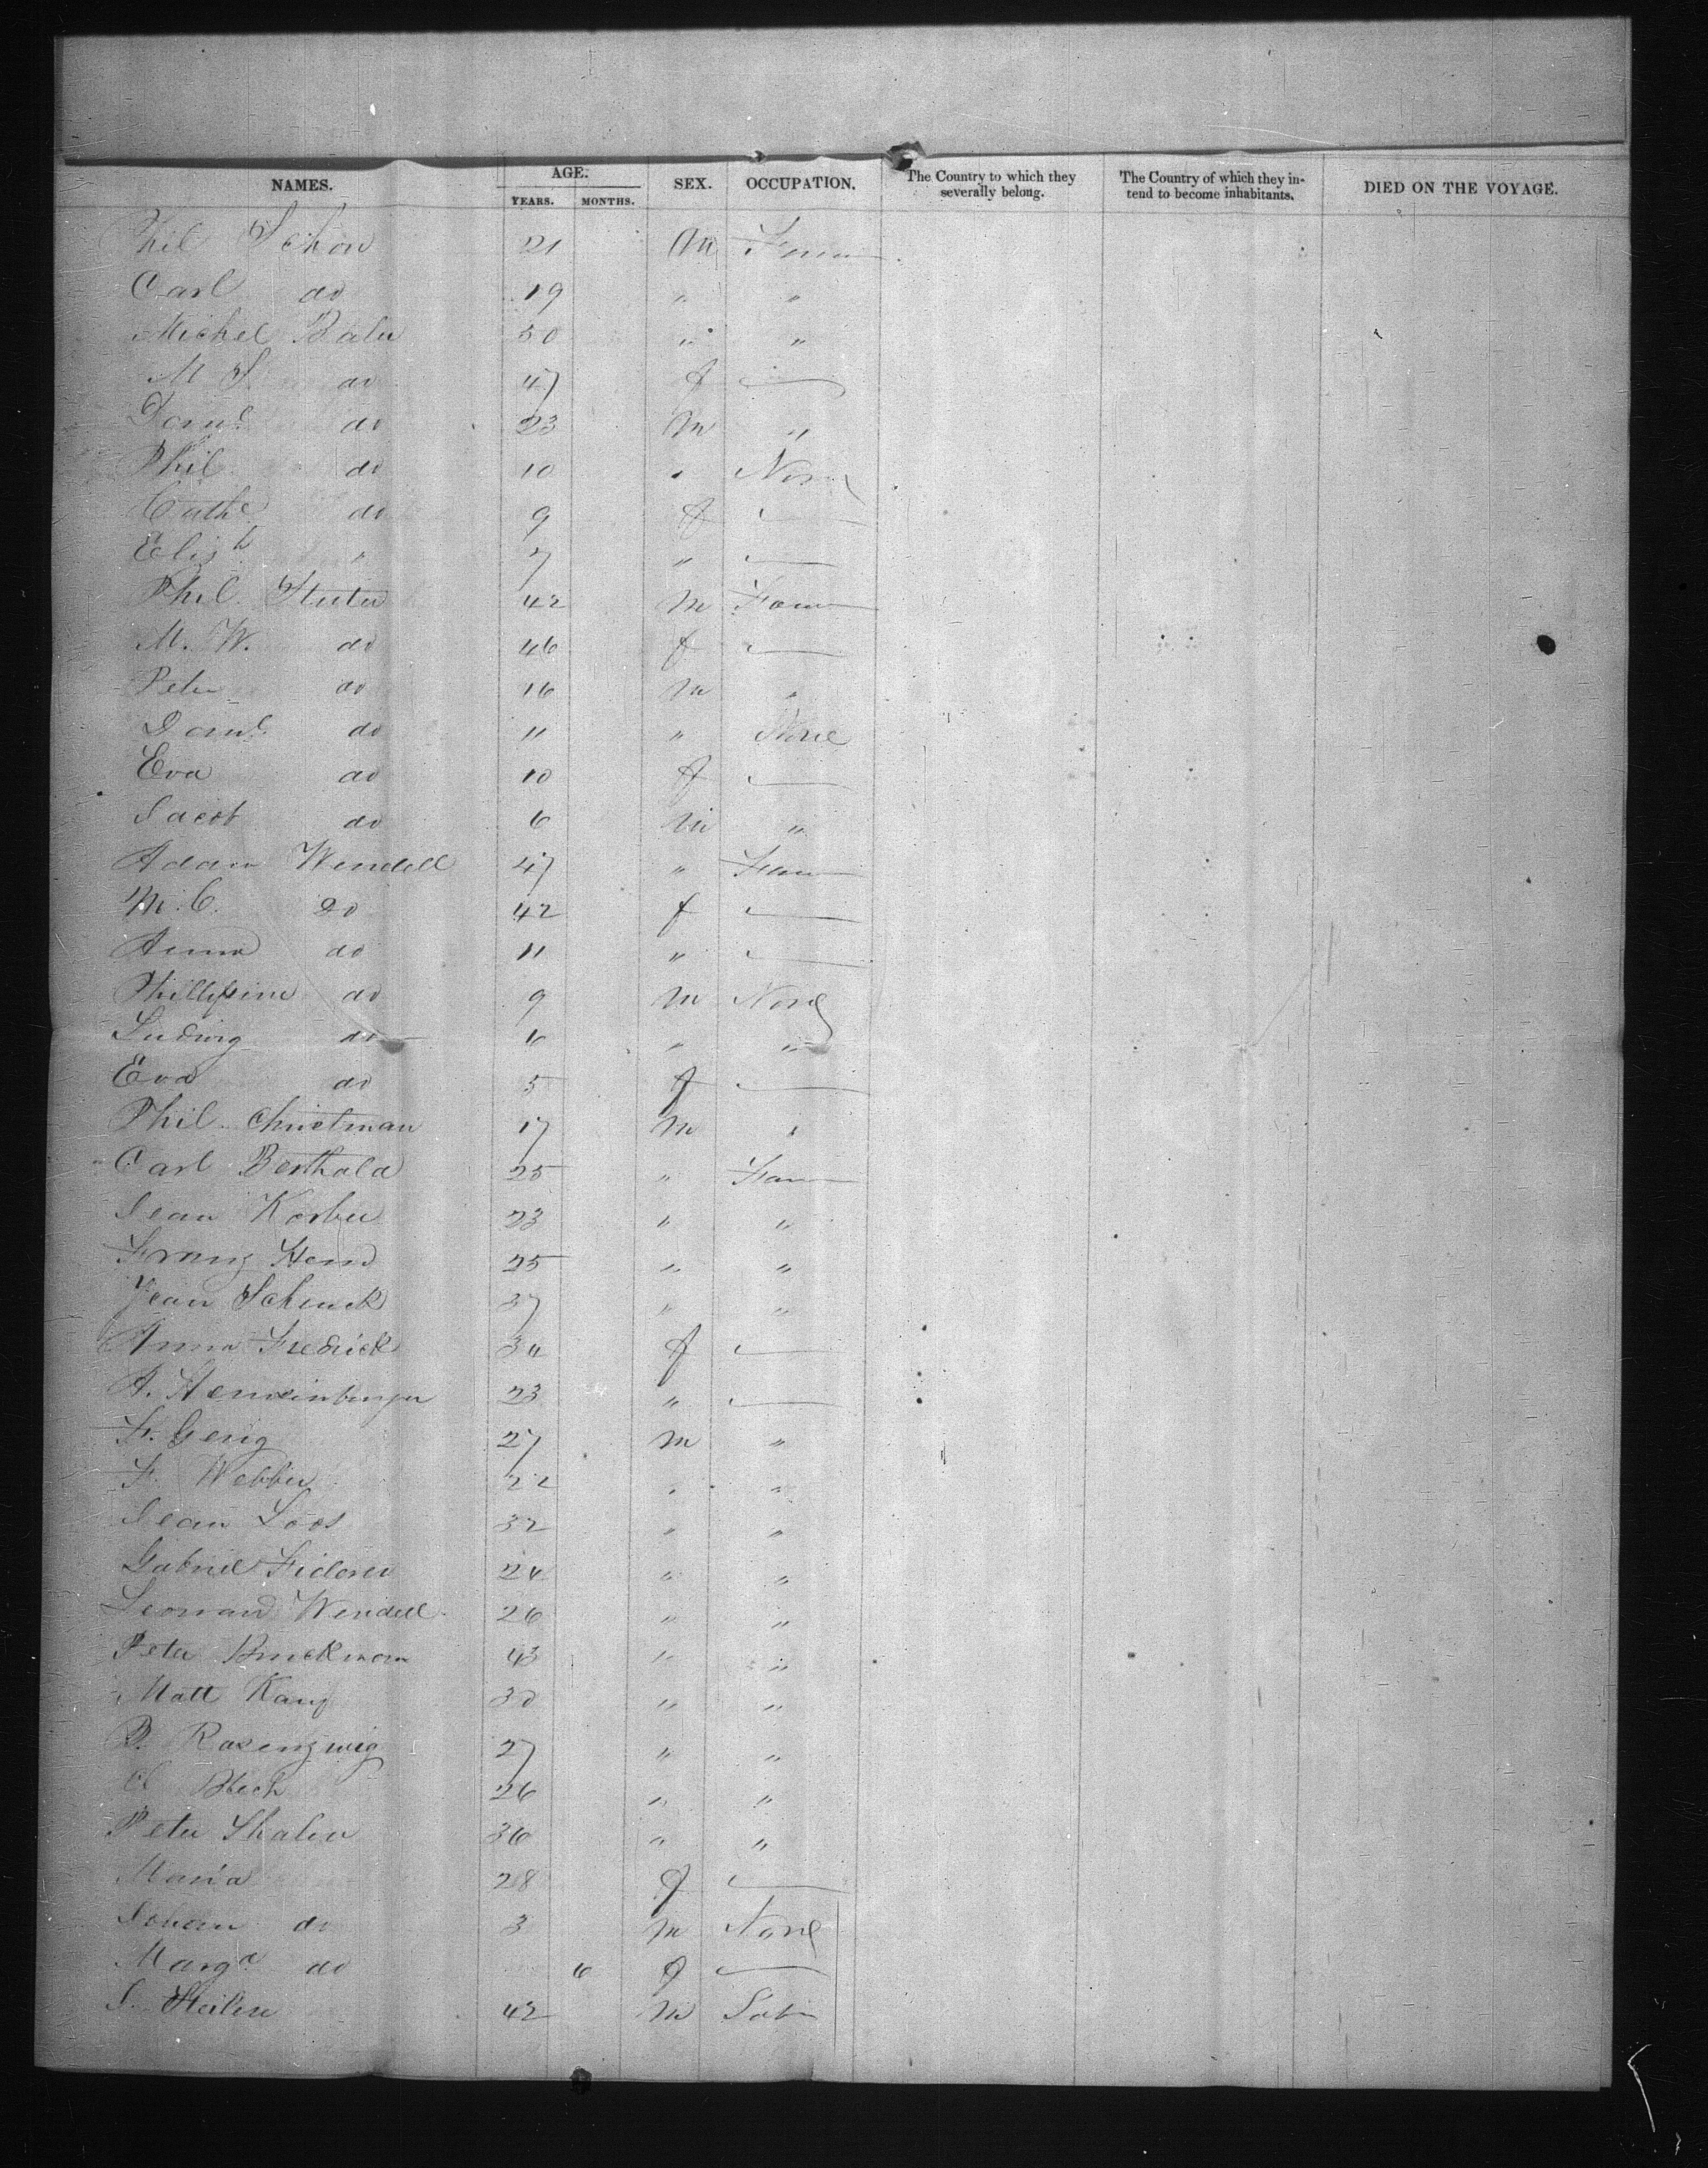 NAMES. AGE. SEX. OCCUPATION. The Country to which they severally belong. The Country of which they intend to become inhabitants. DIED ON THE VOYAGE.
YEARS. MONTHS.
Phil Schon 21 m Farm
Carl do 19 " "
Michel 50 " "
M S do 47 f —
Danl do 23 m "
Phil do 10 " None
Cathe do 9 f —
Elish " 7 " —
Phil. Stuter 42 m Farm
M. W. do 46 f —
Peter do 16 m "
Danl do 11 " None
Eva do 10 f —
Jacob do 6 m "
Adam Wendell 47 " Farm
M. C. Do 42 f —
Anna do 11 " —
Phillipine do 9 m None
Ludwig do 6 " "
Eva do 5 f —
Phil. Christman 17 m "
Carl Berthold 25 " Farm
Jean Korber 23 " "
Franz 25 " "
Jean Schenck 37 " "
Anna Fredrick 30 f —
A. 23 " —
F. Gerig 27 m "
F. Webber 22 " "
Jean Loos 32 " "
Gabriel 24 " "
Leonard Wendell 26 " "
Peter Bruckman 43 " "
Matt 30 " "
B. Rosenzwig 27 " "
Blech 26 " "
Peter Shaler 36 " "
Maria 28 f —
Johan do 3 m None
Marga do 6 f —
J. 42 m Lab